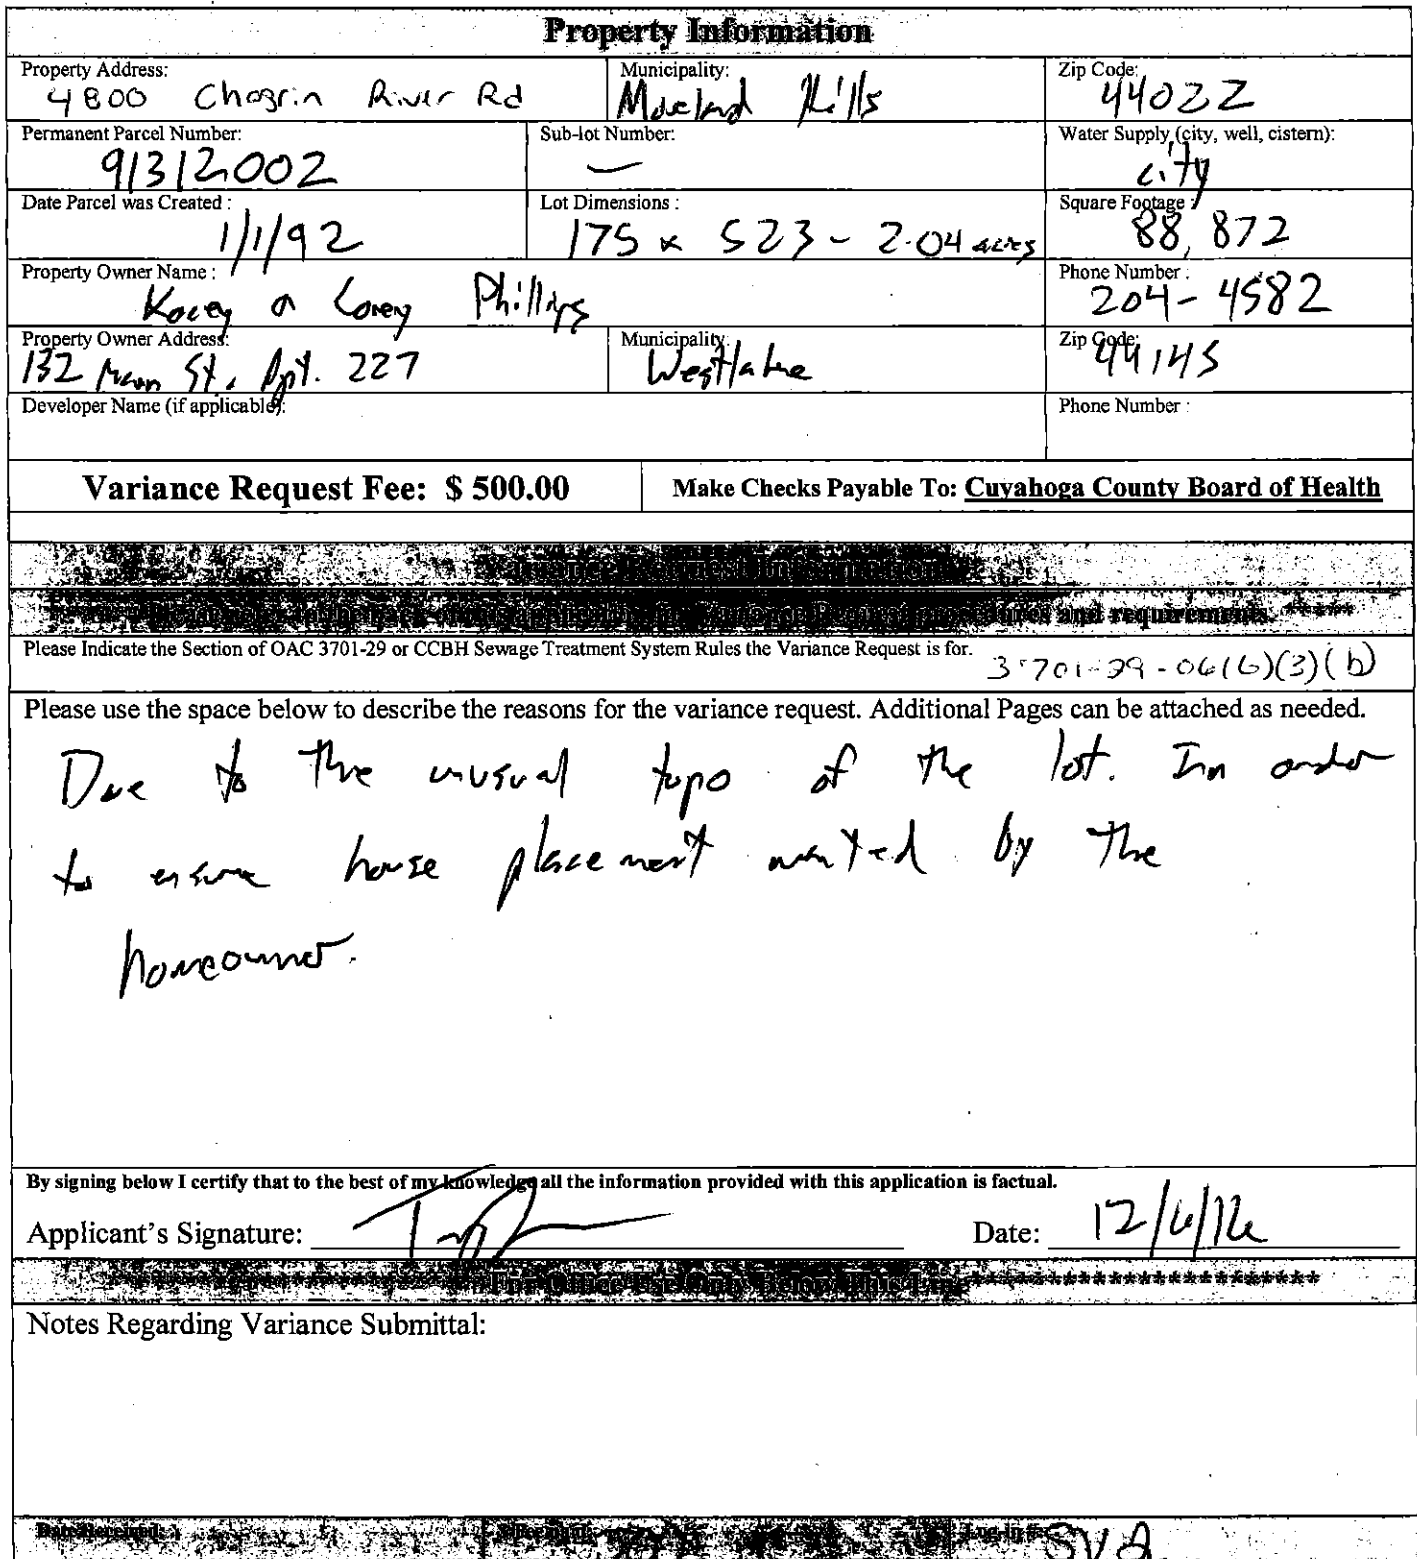 Property Information
Property Address: Municipality: Zip Code:
4800 Chagrin River Rd Moreland Hills 44022
Permanent Parcel Number: Sub-lot Number: Water Supply (city, well, cistern):
91312002 — city
Date Parcel was Created : Lot Dimensions : Square Footage :
1/1/92 175 x 523 - 2.04 acres 88,872
Property Owner Name : Phone Number :
Corey Phillips 204-4582
Property Owner Address: Municipality: Zip Code:
132 St., Apt. 227 Westlake 44145
Developer Name (if applicable): Phone Number :
Variance Request Fee: $ 500.00 Make Checks Payable To: Cuyahoga County Board of Health
Variance Request Information
Variance Request procedures and requirements. *****
Please Indicate the Section of OAC 3701-29 or CCBH Sewage Treatment System Rules the Variance Request is for. 3701-29-06(G)(3)(b)
Please use the space below to describe the reasons for the variance request. Additional Pages can be attached as needed.
Due to the unusual topo of the lot. In order
to ensure house placement wanted by the
homeowner.
By signing below I certify that to the best of my knowledge all the information provided with this application is factual.
Applicant's Signature: Date: 12/6/16
For Office Use Only Below This Line***********************
Notes Regarding Variance Submittal:
Date Received: Log-in #: